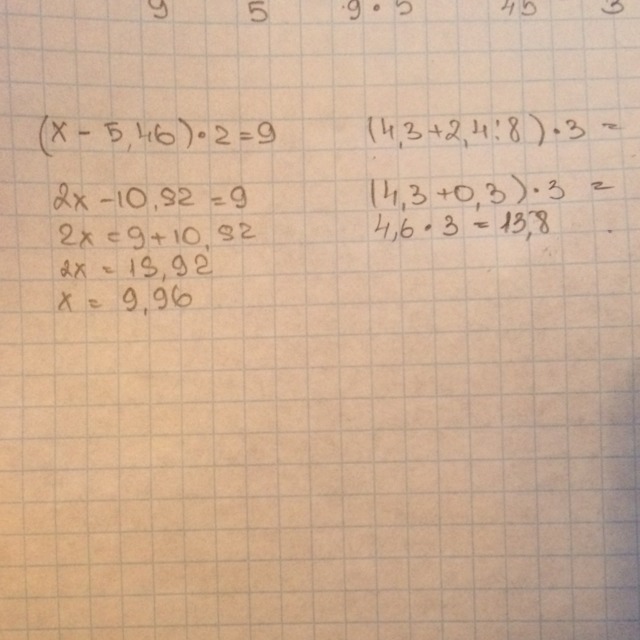 9 5 9·5 45 3
(x - 5,46)·2=9
2x -10,92=9
2x = 9+10,92
2x = 19,92
x = 9,96
(4,3+2,4:8)·3 =
(4,3+0,3)·3 =
4,6·3=13,8